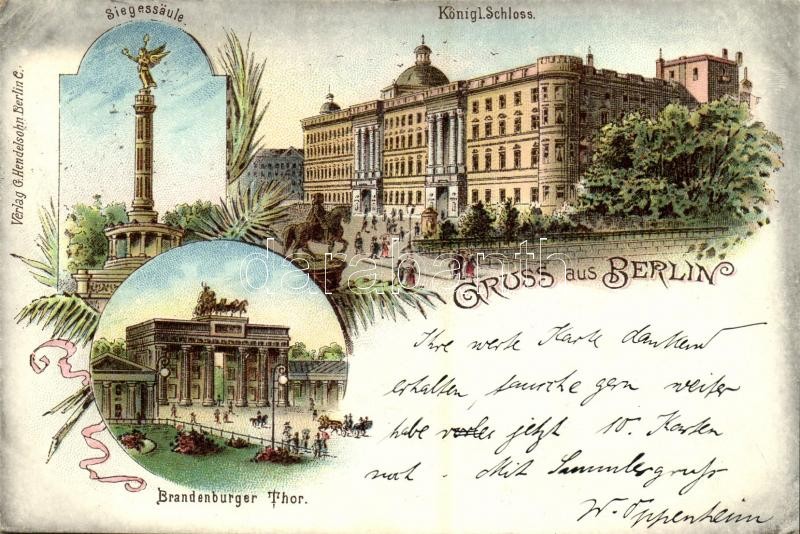 Siegessäule.
Königl. Schloss.
Verlag G. Hendelsohn, Berlin C.
darabanth
GRUSS aus BERLIN
Ihre werte Karte dankend
erhalten, tausche gern weiter
habe jetzt 10. Karten
noch. Mit Sammlergruß
W. Oppenheim
Brandenburger Thor.